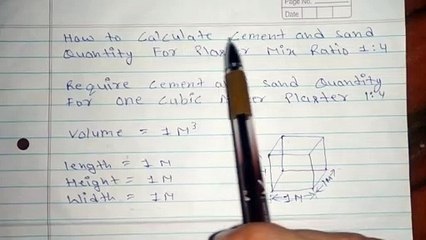 Page No.
Date
How to Calculate Cement and Sand
Quantity For Plaster Mix Ratio 1:4
Require Cement and Sand Quantity
For One Cubic Meter Plaster 1:4
Volume = 1 M³
Length = 1M
Height = 1M
Width = 1M
1M
1M